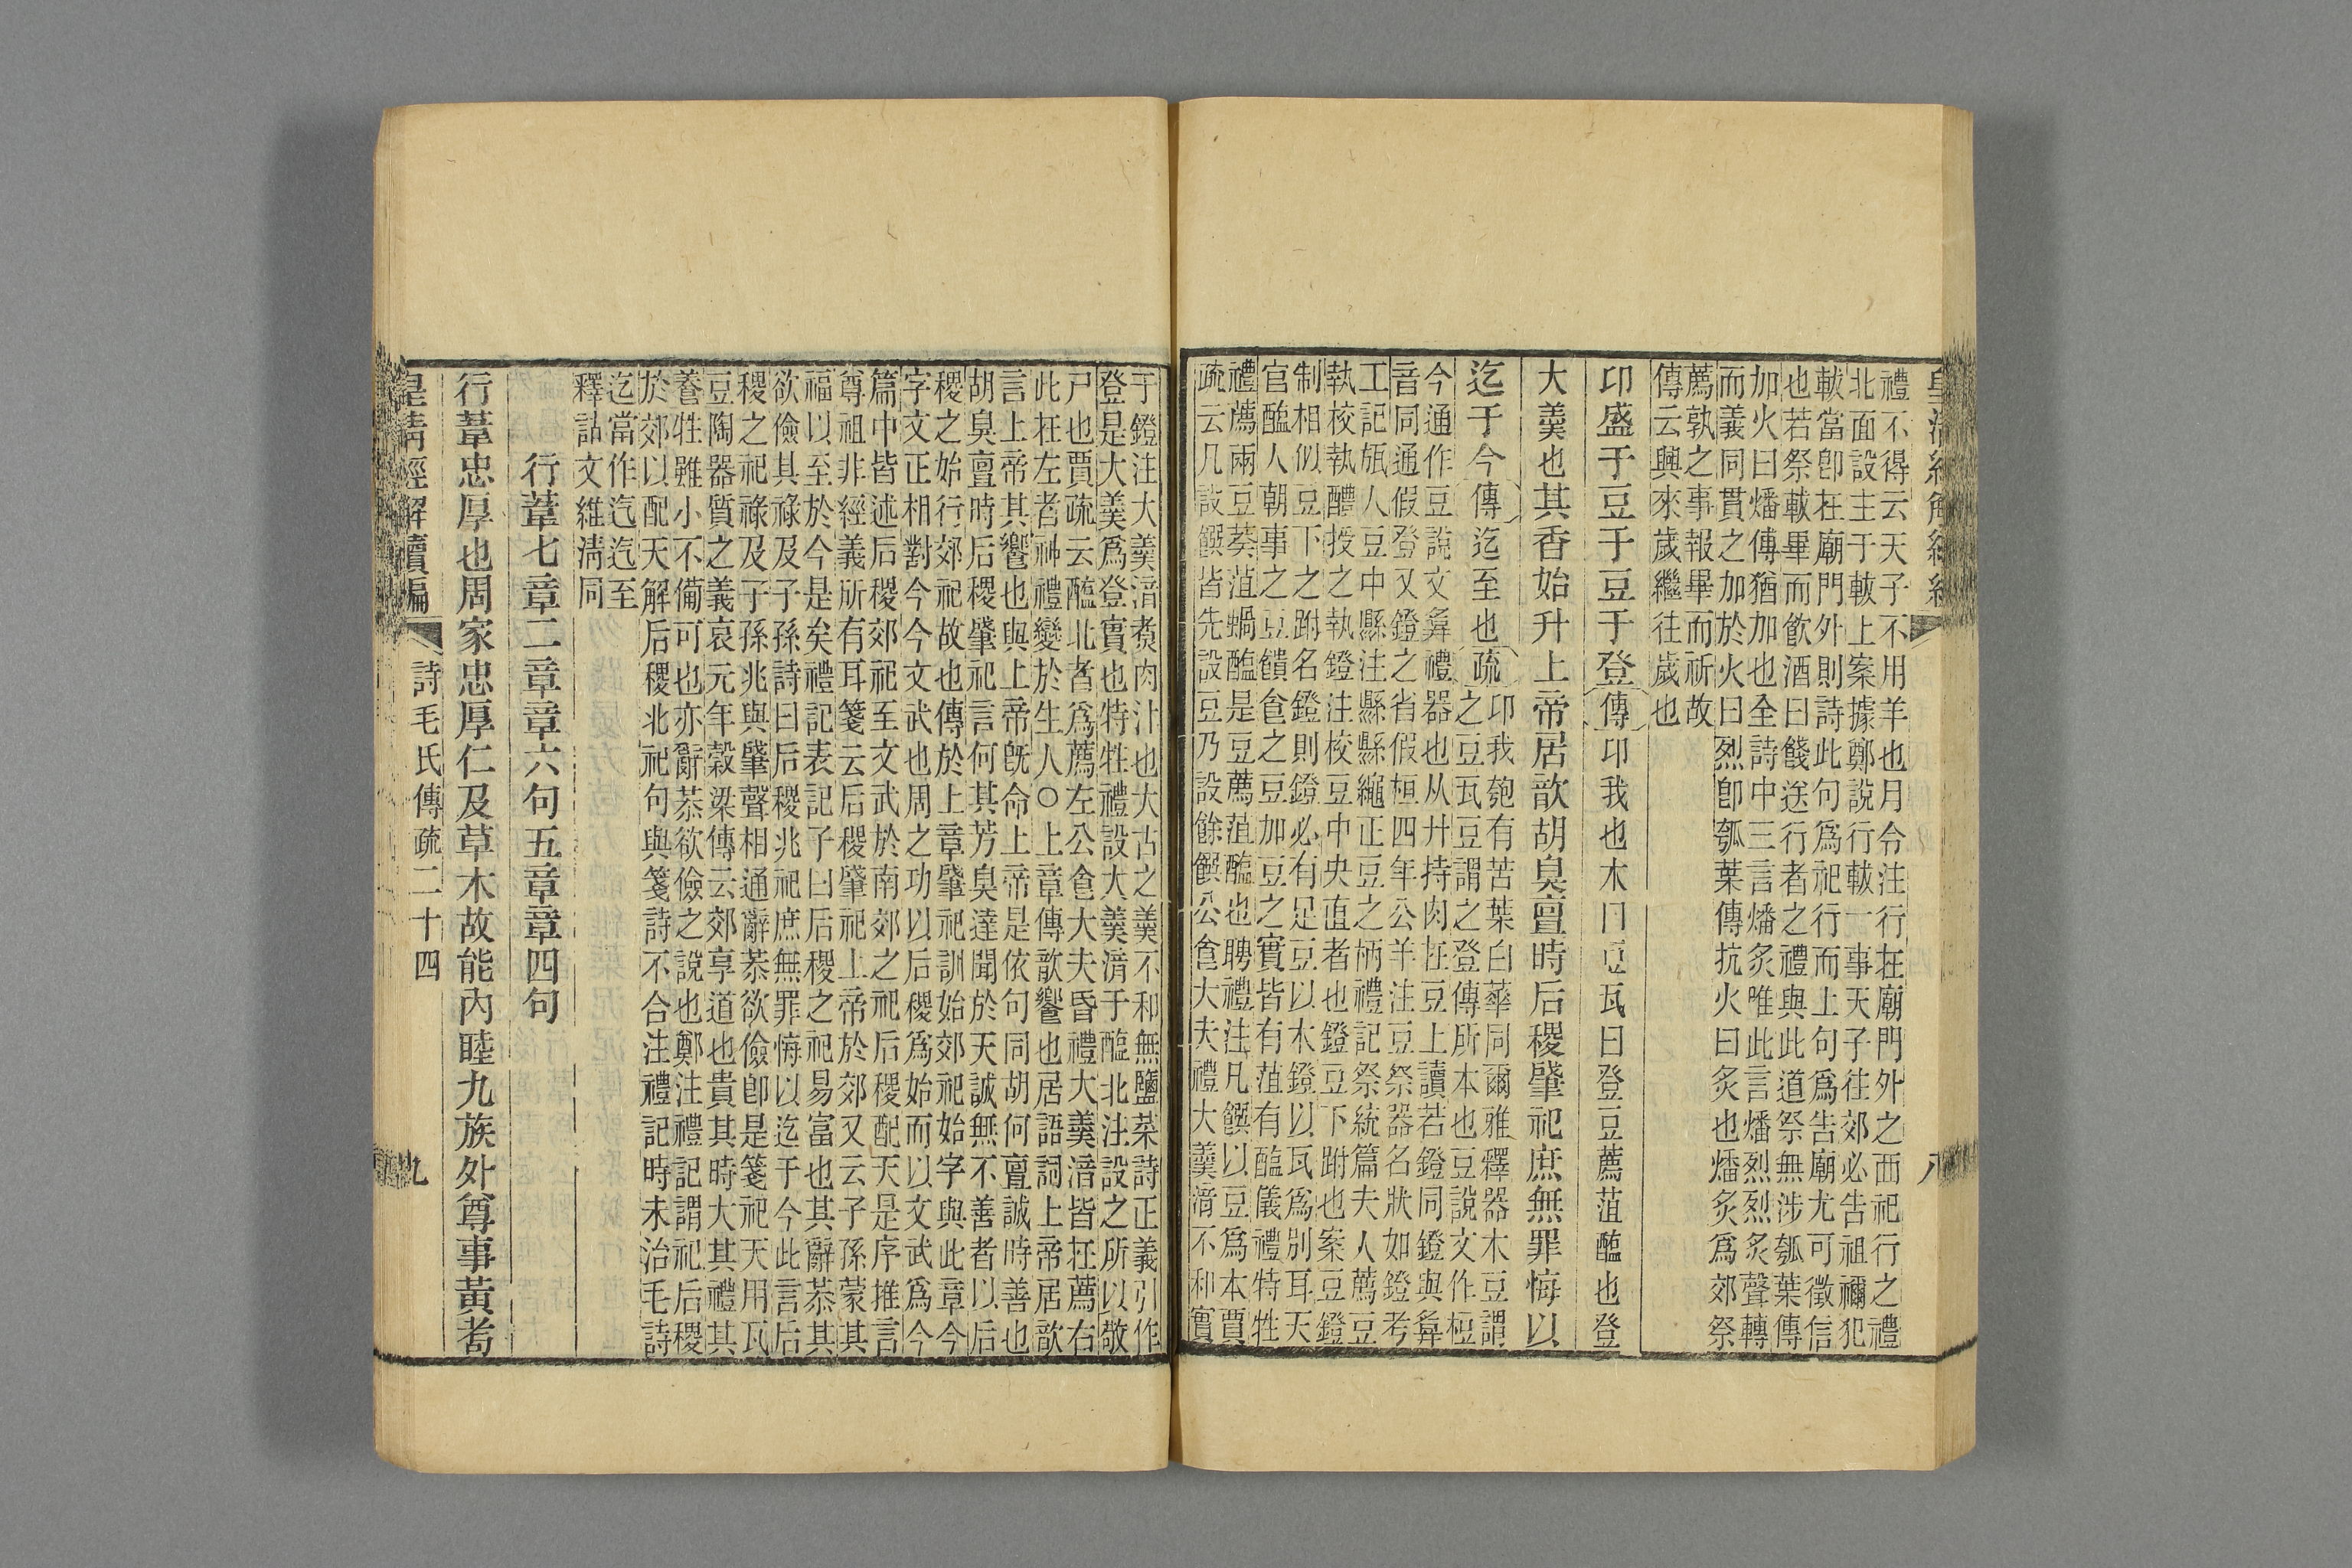 禮不得云天子不用羊也月令注行在廟門外之西祀行之禮
北面設主于軷上案據鄭說行軷一事天子往郊必告祖禰犯
軷當卽在廟門外則詩此句爲祀行而上句爲告廟尤可徵信
也若祭軷畢而飮酒曰餞送行者之禮與此道祭無涉瓠葉傳
加火曰燔傳猶加也全詩中三言燔炙唯此言燔烈烈炙聲轉
而義同貫之加於火曰烈卽瓠葉傳抗火曰炙也燔炙爲郊祭
薦孰之事報畢而祈故
傳云興來歲繼往歲也
卬盛于豆于豆于登傳卬我也木曰豆瓦曰登豆薦菹醢也登
大羹也其香始升上帝居歆胡臭亶時后稷肇祀庶無罪悔以
迄于今傳迄至也疏卬我匏有苦葉白華同爾雅釋器木豆謂
之豆瓦豆謂之登傳所本也豆說文作梪
今通作豆說文䇺禮器也从廾持肉在豆上讀若鐙同鐙與䇺
音同通假登又鐙之省假桓四年公羊注豆祭器名狀如鐙考
工記瓬人豆中縣注縣縣繩正豆之柄禮記祭統篇夫人薦豆
執校執醴授之執鐙注校豆中央直者也鐙豆下跗也案豆鐙
制相似豆下之跗名鐙則鐙必有足豆以木鐙以瓦爲別耳天
官醢人朝事之豆饋食之豆加豆之實皆有菹有醢儀禮特牲
禮薦兩豆葵菹蝸醢是豆薦菹醢也聘禮注凡饌以豆爲本賈
疏云凡設饌皆先設豆乃設餘饌公食大夫禮大羹湆不和實
于鐙注大羹湆煑肉汁也大古之羹不和無鹽菜詩正義引作
登是大羹爲登實也特牲禮設大羹湆于醢北注設之所以敬
尸也賈疏云醢北者爲薦左公食大夫昏禮大羹湆皆在薦右
此在左者神禮變於生人○上章傳歆饗也居語詞上帝居歆
言上帝其饗也與上帝旣命上帝是依句同胡何亶誠時善也
胡臭亶時后稷肇祀言何其芳臭達聞於天誠無不善者以后
稷之始行郊祀故也傳於上章肇祀訓始郊祀始字與此章今
字文正相對今今文武也周之功以后稷爲始而以文武爲今
篇中皆述后稷郊祀至文武於南郊之祀后稷配天是序推言
尊祖非經義所有耳箋云后稷肇祀上帝於郊又云子孫蒙其
福以至於今是矣禮記表記子曰后稷之祀易富也其辭恭其
欲儉其祿及子孫詩曰后稷兆祀庶無罪悔以迄于今此言后
稷之祀祿及子孫兆與肇聲相通辭恭欲儉卽是箋祀天用瓦
豆陶器質之義哀元年穀梁傳云郊享道也貴其時大其禮其
養牲雖小不備可也亦辭恭欲儉之說也鄭注禮記謂祀后稷
於郊以配天解后稷北祀句與箋詩不合注禮記時未治毛詩
迄當作汔汔至
釋詁文維淸同
行葦七章二章章六句五章章四句
行葦忠厚也周家忠厚仁及草木故能內睦九族外尊事黃耇
皇清經解續編
詩毛氏傳疏二十四
九
八